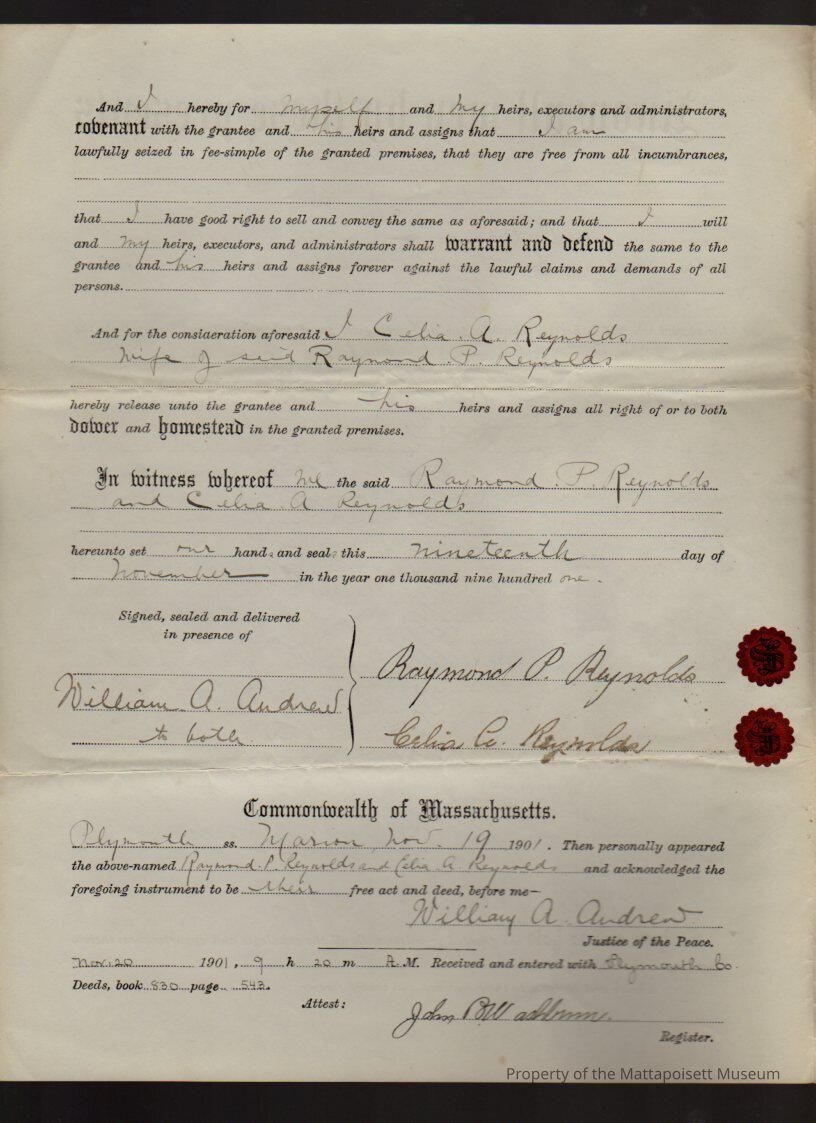 And I hereby for myself and my heirs, executors and administrators,
covenant with the grantee and his heirs and assigns that I am
lawfully seized in fee-simple of the granted premises, that they are free from all incumbrances,
that I have good right to sell and convey the same as aforesaid; and that I will
and my heirs, executors, and administrators shall warrant and defend the same to the
grantee and his heirs and assigns forever against the lawful claims and demands of all
persons.
And for the consideration aforesaid I Celia A. Reynolds
wife of said Raymond P. Reynolds
hereby release unto the grantee and his heirs and assigns all right of or to both
dower and homestead in the granted premises.
In witness whereof we the said Raymond P. Reynolds
and Celia A Reynolds
hereunto set our hands and seals this nineteenth day of
November in the year one thousand nine hundred one.
Signed, sealed and delivered
in presence of
William A. Andrew
to both
Raymond P. Reynolds
Celia A. Reynolds
Commonwealth of Massachusetts.
Plymouth ss. Marion, Nov. 19 1901. Then personally appeared
the above-named Raymond P. Reynolds and Celia A Reynolds and acknowledged the
foregoing instrument to be their free act and deed, before me—
William A. Andrew
Justice of the Peace.
Nov. 20 1901, 9 h 20 m A.M. Received and entered with Plymouth Co.
Deeds, book 830 page 543.
Attest:
John B Washburn.
Register.
Property of the Mattapoisett Museum